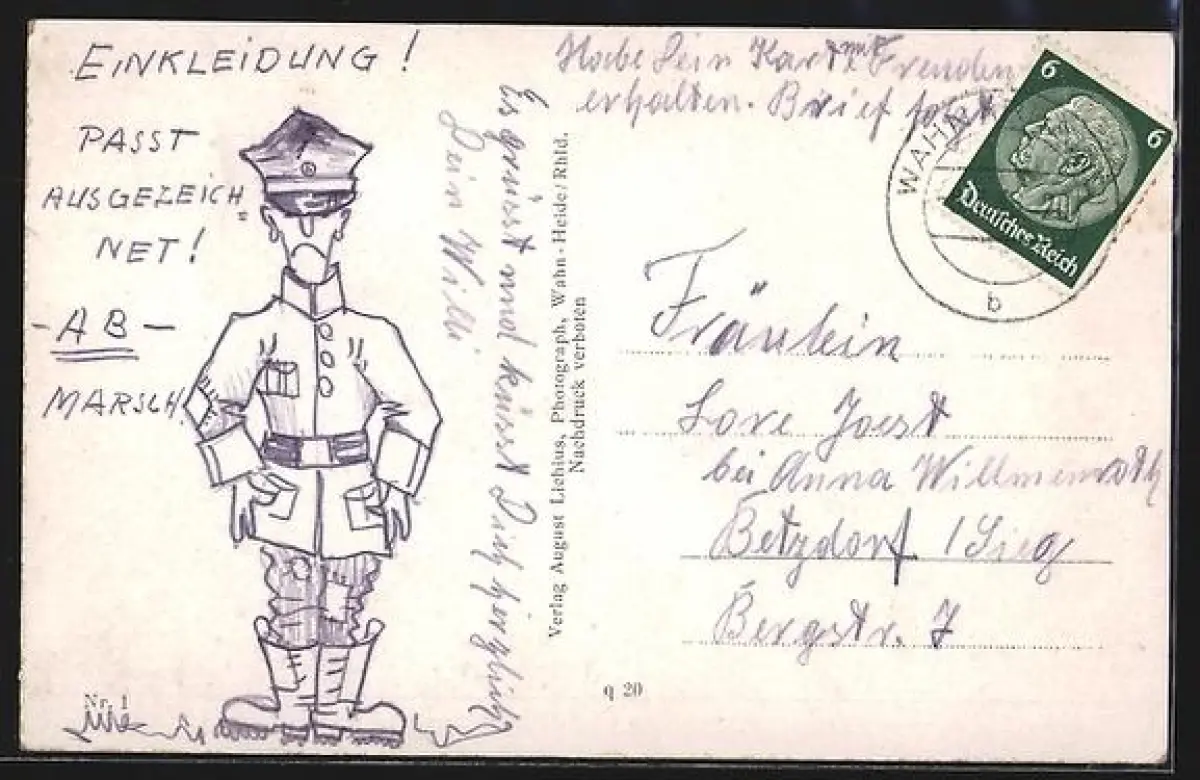 EINKLEIDUNG!
PASST
AUSGEZEICH=
NET!
- AB -
MARSCH!
Nr. 1
Es grüsst und küsst Dich herzlichst
Dein Willi
Verlag August Lichius, Photograph, Wahn-Heide/Rhld.
Nachdruck verboten
Habe Dein Karte mit Freuden
erhalten. Brief folgt
WAHN
b
6
6
Deutsches Reich
Fräulein
Lore Joest
bei Anna
Betzdorf / Sieg
Bergstr. 7
q 20